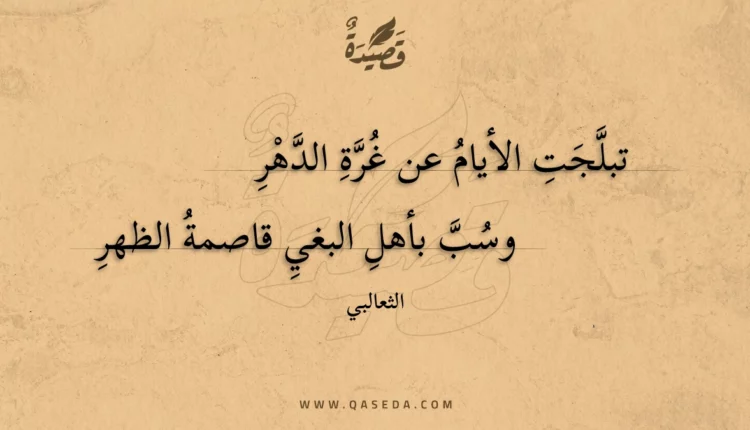 قَصِيْدَةٌ
تبلَّجَتِ الأيامُ عن غُرَّةِ الدَّهْرِ
وسُبَّ بأهلِ البغيِ قاصمةُ الظهرِ
الثعالبي
WWW.QASEDA.COM